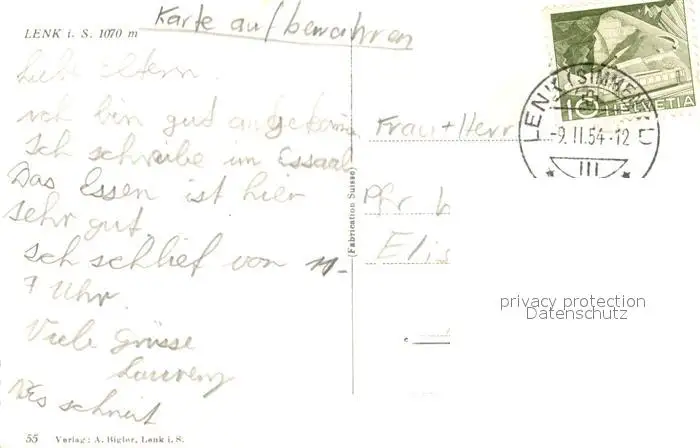 Karte aufbewahren
LENK i. S. 1070 m
Liebe Eltern.
ich bin gud angekomm
Ich schreibe im Essaal
Das Essen ist hier
sehr gut.
Ich schlief von 11-
7 Uhr.
Viele Grüsse
Laurenz
Es schneit
55 Verlag: A. Bigler, Lenk i. S.
(Fabrication Suisse)
10 HELVETIA
LENK (SIMMENT
-9.II.54-12
III
Frau + Herr
Pfr
Elis
privacy protection
Datenschutz